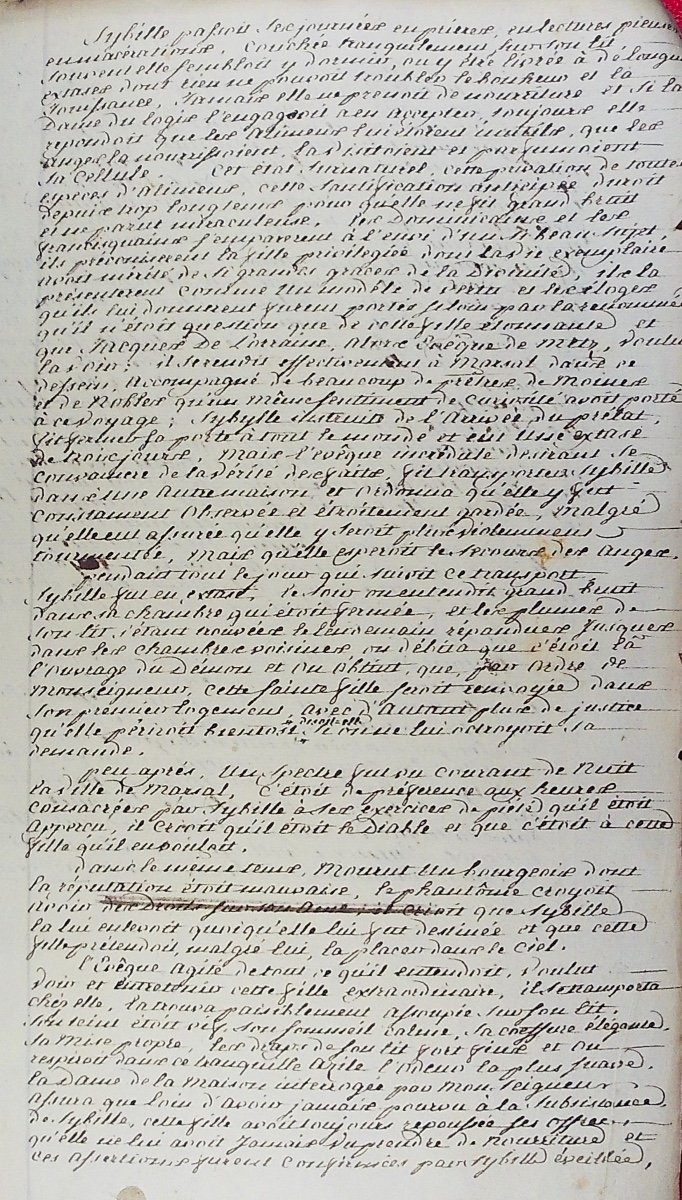 Sybille passoit ses journées en prieres, en lectures pieuses,
en macérations. Couchée tranquilement sur son lit,
souvent elle sembloit y dormir, ou y être livrée à de longues
extases dont rien ne pouvoit troubler le bonheur et la
Jouissance. Jamais elle ne prenoit de nourriture et si la
Dame du logis l'engageoit à en accepter, toujours elle
repondoit que les alimens lui étoient inutils, que les
anges la nourrissoient, la visitoient et parfumoient
sa Cellule. Cet état surnaturel, cette privation de toutes
especes d'alimens, cette sanctification anticipée duroit
depuis trop longtems pour qu'elle ne fit grand bruit
et ne parut miraculeuse. Les Dominicains et les
franciscains s'emparerent à l'envi d'un si beau sujet,
ils préconiserent la fille privilegiée dont la vie exemplaire
avoit mérité de si grandes graces de la Divinité, ils la
présenterent comme un modèle de vertu et les éloges
qu'ils lui donnerent furent portés si loin par la renommée
qu'il n'étoit question que de cette fille étonnante et
que Jacques De Lorraine, alors Evêque de Metz, voulut
la voir: il se rendit effectivement à Marsal dans ce
dessein, accompagné de beaucoup de prêtres, de Moines
et de Nobles qu'un même sentiment de curiosité avoit porté
à ce voyage; Sybylle instruite de l'Arrivée du prélat,
fit fermer sa porte à tout le monde et eut une extase
de trois jours, Mais l'evêque incrédule desirant se
convaincre de la vérité des faits, fit transporter Sybille
dans une autre maison, et ordonna qu'elle y fut
constament observée et étroitement gardée, malgré
qu'elle eut assurée qu'elle y seroit plus violemment
tourmentée, mais qu'elle esperoit le secours des anges.
pendant tout le jour qui suivit ce transport
Sybille fut en extase. le soir on entendit grand bruit
dans sa chambre qui étoit fermée, et les plumes de
son lit s'étant trouvées le lendemain répandues jusques
dans les chambres voisines, on débita que c'étoit là
l'ouvrage du Démon et on obtint, que, par ordre de
Monseigneur, cette sainte fille seroit renvoyée dans
son premier logement, avec d'autant plus de justice
qu'elle périroit bientost, disoit-elle, si on ne lui octroyoit sa
demande.
peu après, un spectre fut vu courant de Nuit
la ville de Marsal, c'étoit de préference aux heures
consacrées par Sybille à ses exercices de piété qu'il étoit
apperçu, il crioit qu'il étoit le Diable et que c'étoit à cette
fille qu'il en vouloit.
Dans le même tems, mourut un bourgeois dont
la réputation étoit mauvaise, le phantôme croyoit
avoir des Droits sur son ame, et crioit que Sybille
la lui enlevoit quoiqu'elle lui fut destinée et que cette
fille prétendoit, malgré lui, la placer dans le Ciel.
l'Evêque agité de tout ce qu'il entendoit, voulut
voir et entretenir cette fille extraordinaire, il se transporta
chés elle, la trouva paisiblement assoupie sur son lit,
son teint étoit vif, son sommeil calme, sa coëffure élégante,
sa mise propre, les draps de son lit fort fins et on
respiroit dans ce tranquille azile l'odeur la plus suave.
la Dame de la maison interrogée par Monseigneur
assura que loin d'avoir jamais pourvu à la subsistance
de Sybille, cette fille avoit toujours repoussée ses offres,
qu'elle ne lui avoit jamais vu prendre de nourriture et
ces assertions furent confirmées par Sybille éveillée,